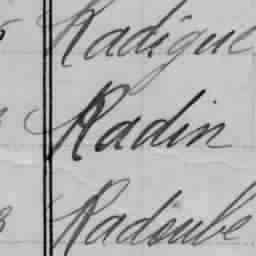 Radigue
Radin
Radoube